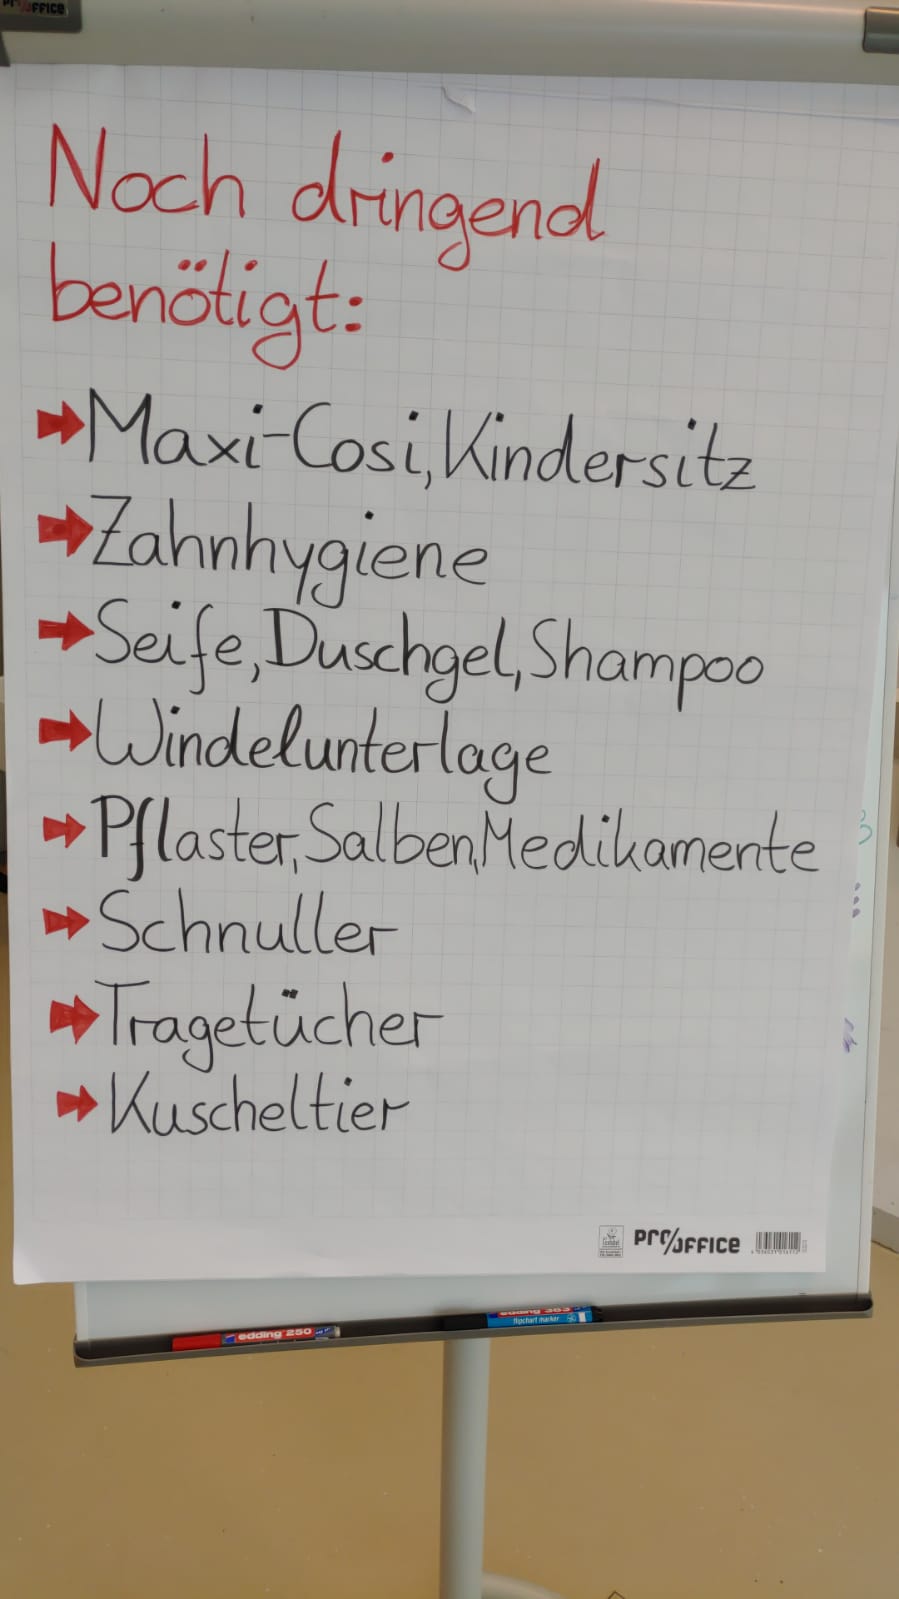 PRO/OFFICE
Noch dringend
benötigt:
Maxi-Cosi, Kindersitz
Zahnhygiene
Seife, Duschgel, Shampoo
Windelunterlage
Pflaster, Salben, Medikamente
Schnuller
Tragetücher
Kuscheltier
PRO/OFFICE
edding 250
edding 383
flipchart marker